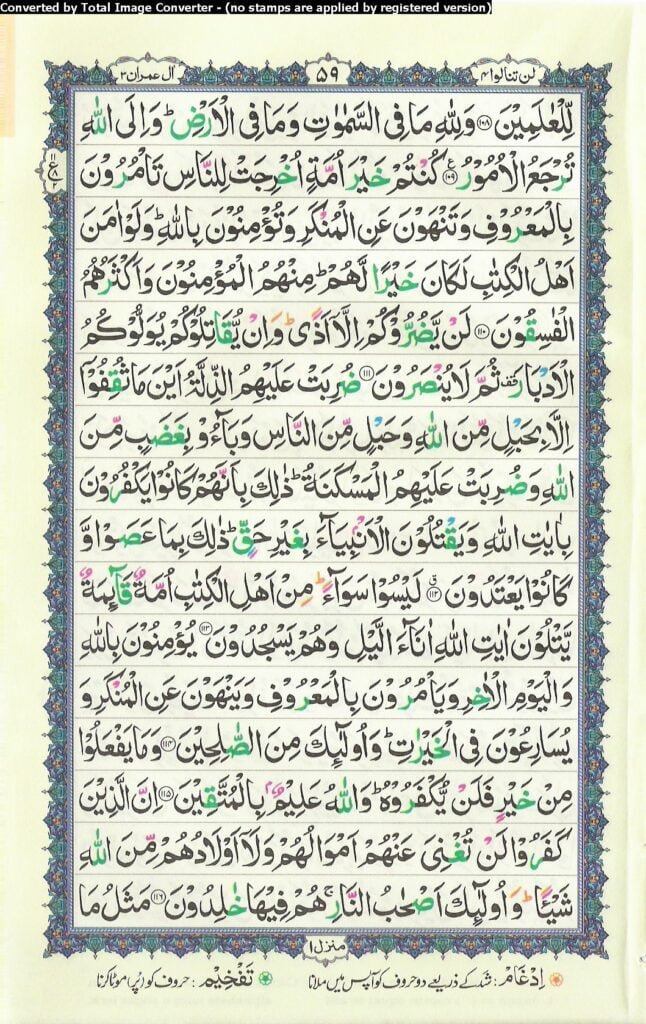 Converted by Total Image Converter - (no stamps are applied by registered version)
لن تنالوا ۴
۵۹
اٰل عمرٰن ۳
لِّلْعٰلَمِیْنَ ۝۱۰۸ وَلِلّٰهِ مَا فِی السَّمٰوٰتِ وَمَا فِی الْاَرْضِ ؕ وَاِلَی اللّٰهِ
تُرْجَعُ الْاُمُوْرُ ۝۱۰۹ كُنْتُمْ خَیْرَ اُمَّةٍ اُخْرِجَتْ لِلنَّاسِ تَاْمُرُوْنَ
بِالْمَعْرُوْفِ وَتَنْهَوْنَ عَنِ الْمُنْكَرِ وَتُؤْمِنُوْنَ بِاللّٰهِ ؕ وَلَوْ اٰمَنَ
اَهْلُ الْكِتٰبِ لَكَانَ خَیْرًا لَّهُمْ ؕ مِنْهُمُ الْمُؤْمِنُوْنَ وَاَكْثَرُهُمُ
الْفٰسِقُوْنَ ۝۱۱۰ لَنْ یَّضُرُّوْكُمْ اِلَّاۤ اَذًی ؕ وَاِنْ یُّقَاتِلُوْكُمْ یُوَلُّوْكُمُ
الْاَدْبَارَ ۫ ثُمَّ لَا یُنْصَرُوْنَ ۝۱۱۱ ضُرِبَتْ عَلَیْهِمُ الذِّلَّةُ اَیْنَ مَا ثُقِفُوْۤا
اِلَّا بِحَبْلٍ مِّنَ اللّٰهِ وَحَبْلٍ مِّنَ النَّاسِ وَبَآءُوْ بِغَضَبٍ مِّنَ
اللّٰهِ وَضُرِبَتْ عَلَیْهِمُ الْمَسْكَنَةُ ؕ ذٰلِكَ بِاَنَّهُمْ كَانُوْا یَكْفُرُوْنَ
بِاٰیٰتِ اللّٰهِ وَیَقْتُلُوْنَ الْاَنْۢبِیَآءَ بِغَیْرِ حَقٍّ ؕ ذٰلِكَ بِمَا عَصَوْا وَّ
كَانُوْا یَعْتَدُوْنَ ۝۱۱۲ لَیْسُوْا سَوَآءً ؕ مِنْ اَهْلِ الْكِتٰبِ اُمَّةٌ قَآئِمَةٌ
یَّتْلُوْنَ اٰیٰتِ اللّٰهِ اٰنَآءَ الَّیْلِ وَهُمْ یَسْجُدُوْنَ ۝۱۱۳ یُؤْمِنُوْنَ بِاللّٰهِ
وَالْیَوْمِ الْاٰخِرِ وَیَاْمُرُوْنَ بِالْمَعْرُوْفِ وَیَنْهَوْنَ عَنِ الْمُنْكَرِ وَ
یُسَارِعُوْنَ فِی الْخَیْرٰتِ ؕ وَاُولٰٓئِكَ مِنَ الصّٰلِحِیْنَ ۝۱۱۴ وَمَا یَفْعَلُوْا
مِنْ خَیْرٍ فَلَنْ یُّكْفَرُوْهُ ؕ وَاللّٰهُ عَلِیْمٌۢ بِالْمُتَّقِیْنَ ۝۱۱۵ اِنَّ الَّذِیْنَ
كَفَرُوْا لَنْ تُغْنِیَ عَنْهُمْ اَمْوَالُهُمْ وَلَاۤ اَوْلَادُهُمْ مِّنَ اللّٰهِ
شَیْئًا ؕ وَاُولٰٓئِكَ اَصْحٰبُ النَّارِ ۚ هُمْ فِیْهَا خٰلِدُوْنَ ۝۱۱۶ مَثَلُ مَا
منزل ۱
اِدْغَام: شد کے ذریعے دو حروف کو آپس میں ملانا
تَفْخِیْم: حروف کو (پُر) موٹا کرنا